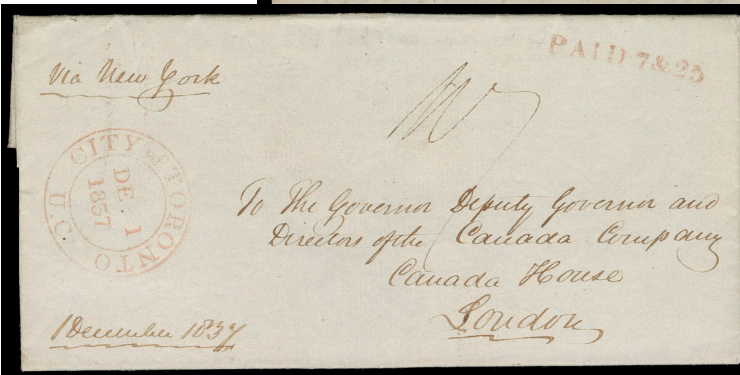 PAID 7&25
Via New York
CITY of TORONTO U.C
DE. 1
1837
To The Governor Deputy Governor and
Directors of the Canada Company
Canada House
London
1 December 1837